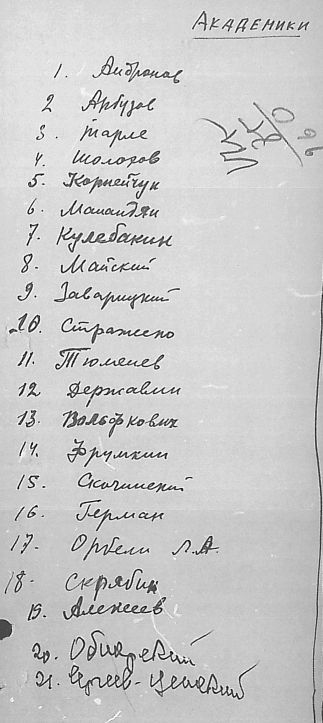 Академики
1. Андронов
2 Арбузов
3. Тарле
4. Шолохов
5. Корнейчук
6. Манандян
7. Кулебакин
8. Майский
9. Заварицкий
10. Стражеско
11. Тюменев
12 Державин
13. Вольфкович
14. Фрумкин
15. Скочинский
16. Герман
17. Орбели Л.А.
18. Скрябин
19. Алексеев
20. Обнорский
21. Сергеев-Ценский